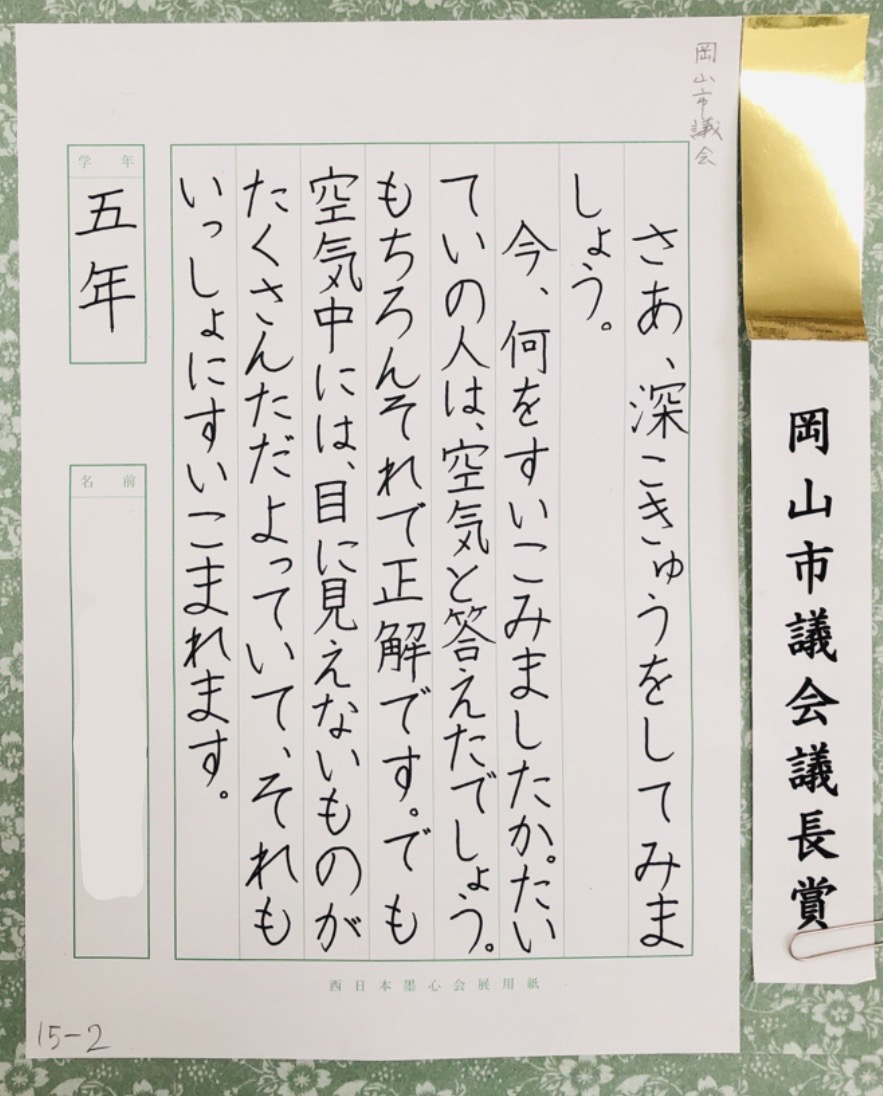 岡山市議会議長賞
岡山市議会
さあ、深こきゅうをしてみま
しょう。
今、何をすいこみましたか。たい
ていの人は、空気と答えたでしょう。
もちろんそれで正解です。でも
空気中には、目に見えないものが
たくさんただよっていて、それも
いっしょにすいこまれます。
学年
五年
名前
西日本墨心会展用紙
15-2